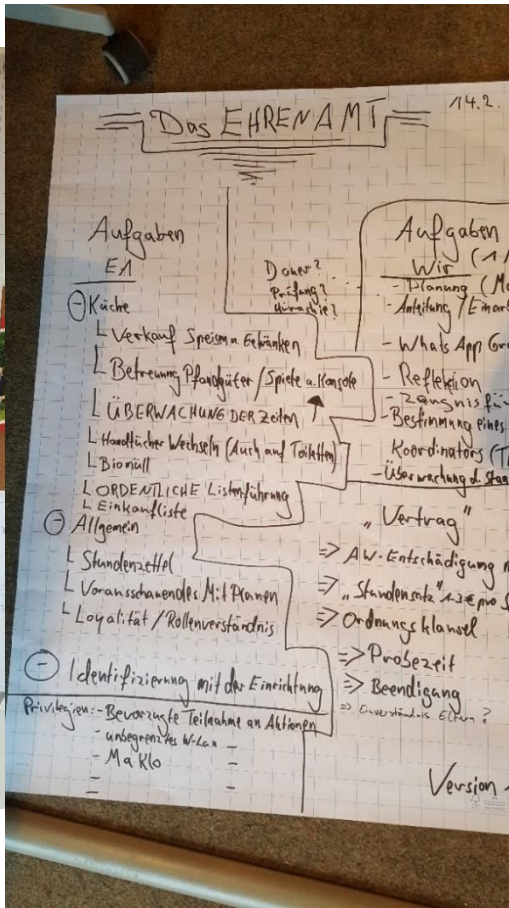 14.2.
Das EHRENAMT
Aufgaben
E1
Küche
Verkauf Speisen u Getränken
Betreuung Pfandgüter / Spiele u. Konsole
ÜBERWACHUNG DER Zeiten
Handtücher Wechseln (Auch auf Toiletten)
Biomüll
ORDENTLICHE Listenführung
Einkaufliste
Allgemein
Stundenzettel
Vorausschauendes Mit Planen
Loyalität / Rollenverständnis
Identifizierung mit der Einrichtung
Privilegien: - Bevorzugte Teilnahme an Aktionen
- unbegrenztes W-Lan -
- Ma Klo -
Dauer?
Prüfung?
Hirarchie?
Aufgaben
Wir
- Planung
- Anleitung /
- Whats App
- Reflektion
- Zängnis für
- Bestimmung eines
Koordinators
- Überwachung d.
„Vertrag"
=> AW-Entschädigung
=> „Stundensatz" 1-3 € pro
=> Ordnungsklausel
=> Probezeit
=> Beendigung
=> Einverständnis Eltern?
Version